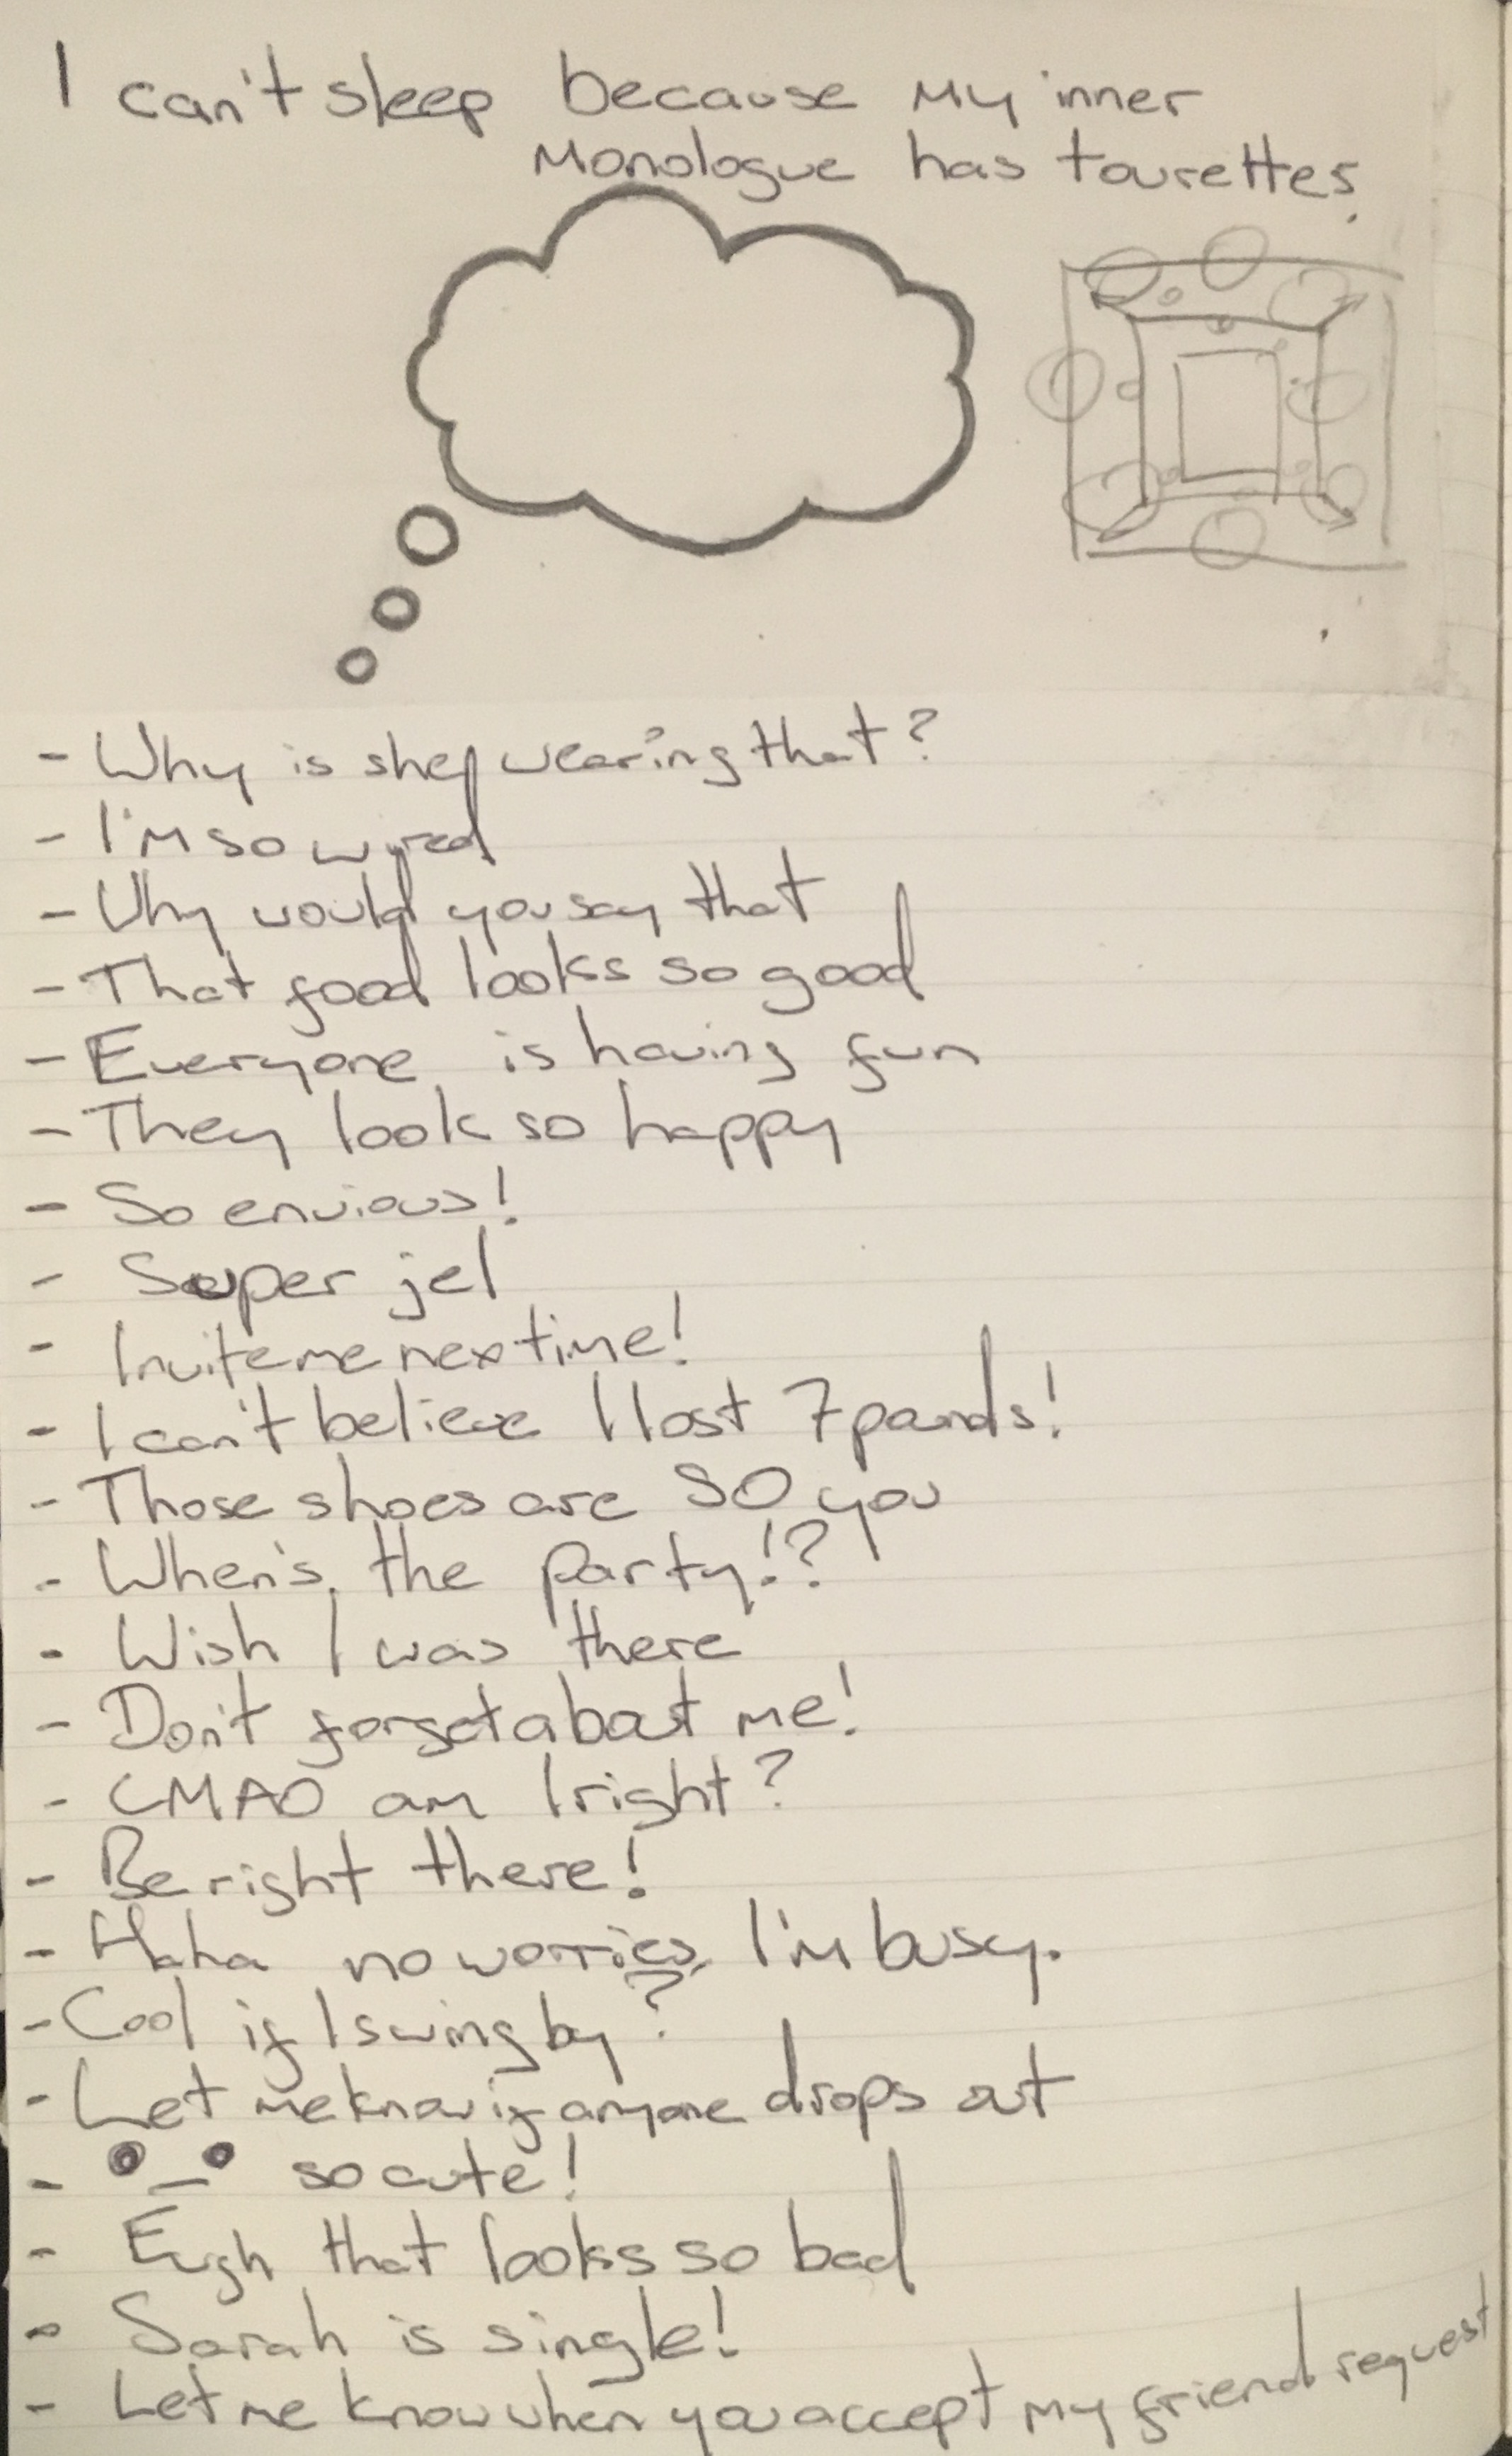 I can't sleep because my inner
monologue has tourettes.
- Why is she wearing that?
- I'm so wyred
- Why would you say that
- That food looks so good
- Everyone is having fun
- They look so happy
- So envious!
- Super jel
- Invite me nex time!
- I can't believe I lost 7 pounds!
- Those shoes are SO you
- When's the party!?
- Wish I was there
- Don't forget about me!
- LMAO am I right?
- Be right there!
- Haha no worries, I'm busy.
- Cool if I swing by?
- Let me know if anyone drops out
- so cute!
- Eugh that looks so bad
- Sarah is single!
- Let me know when you accept my friend request